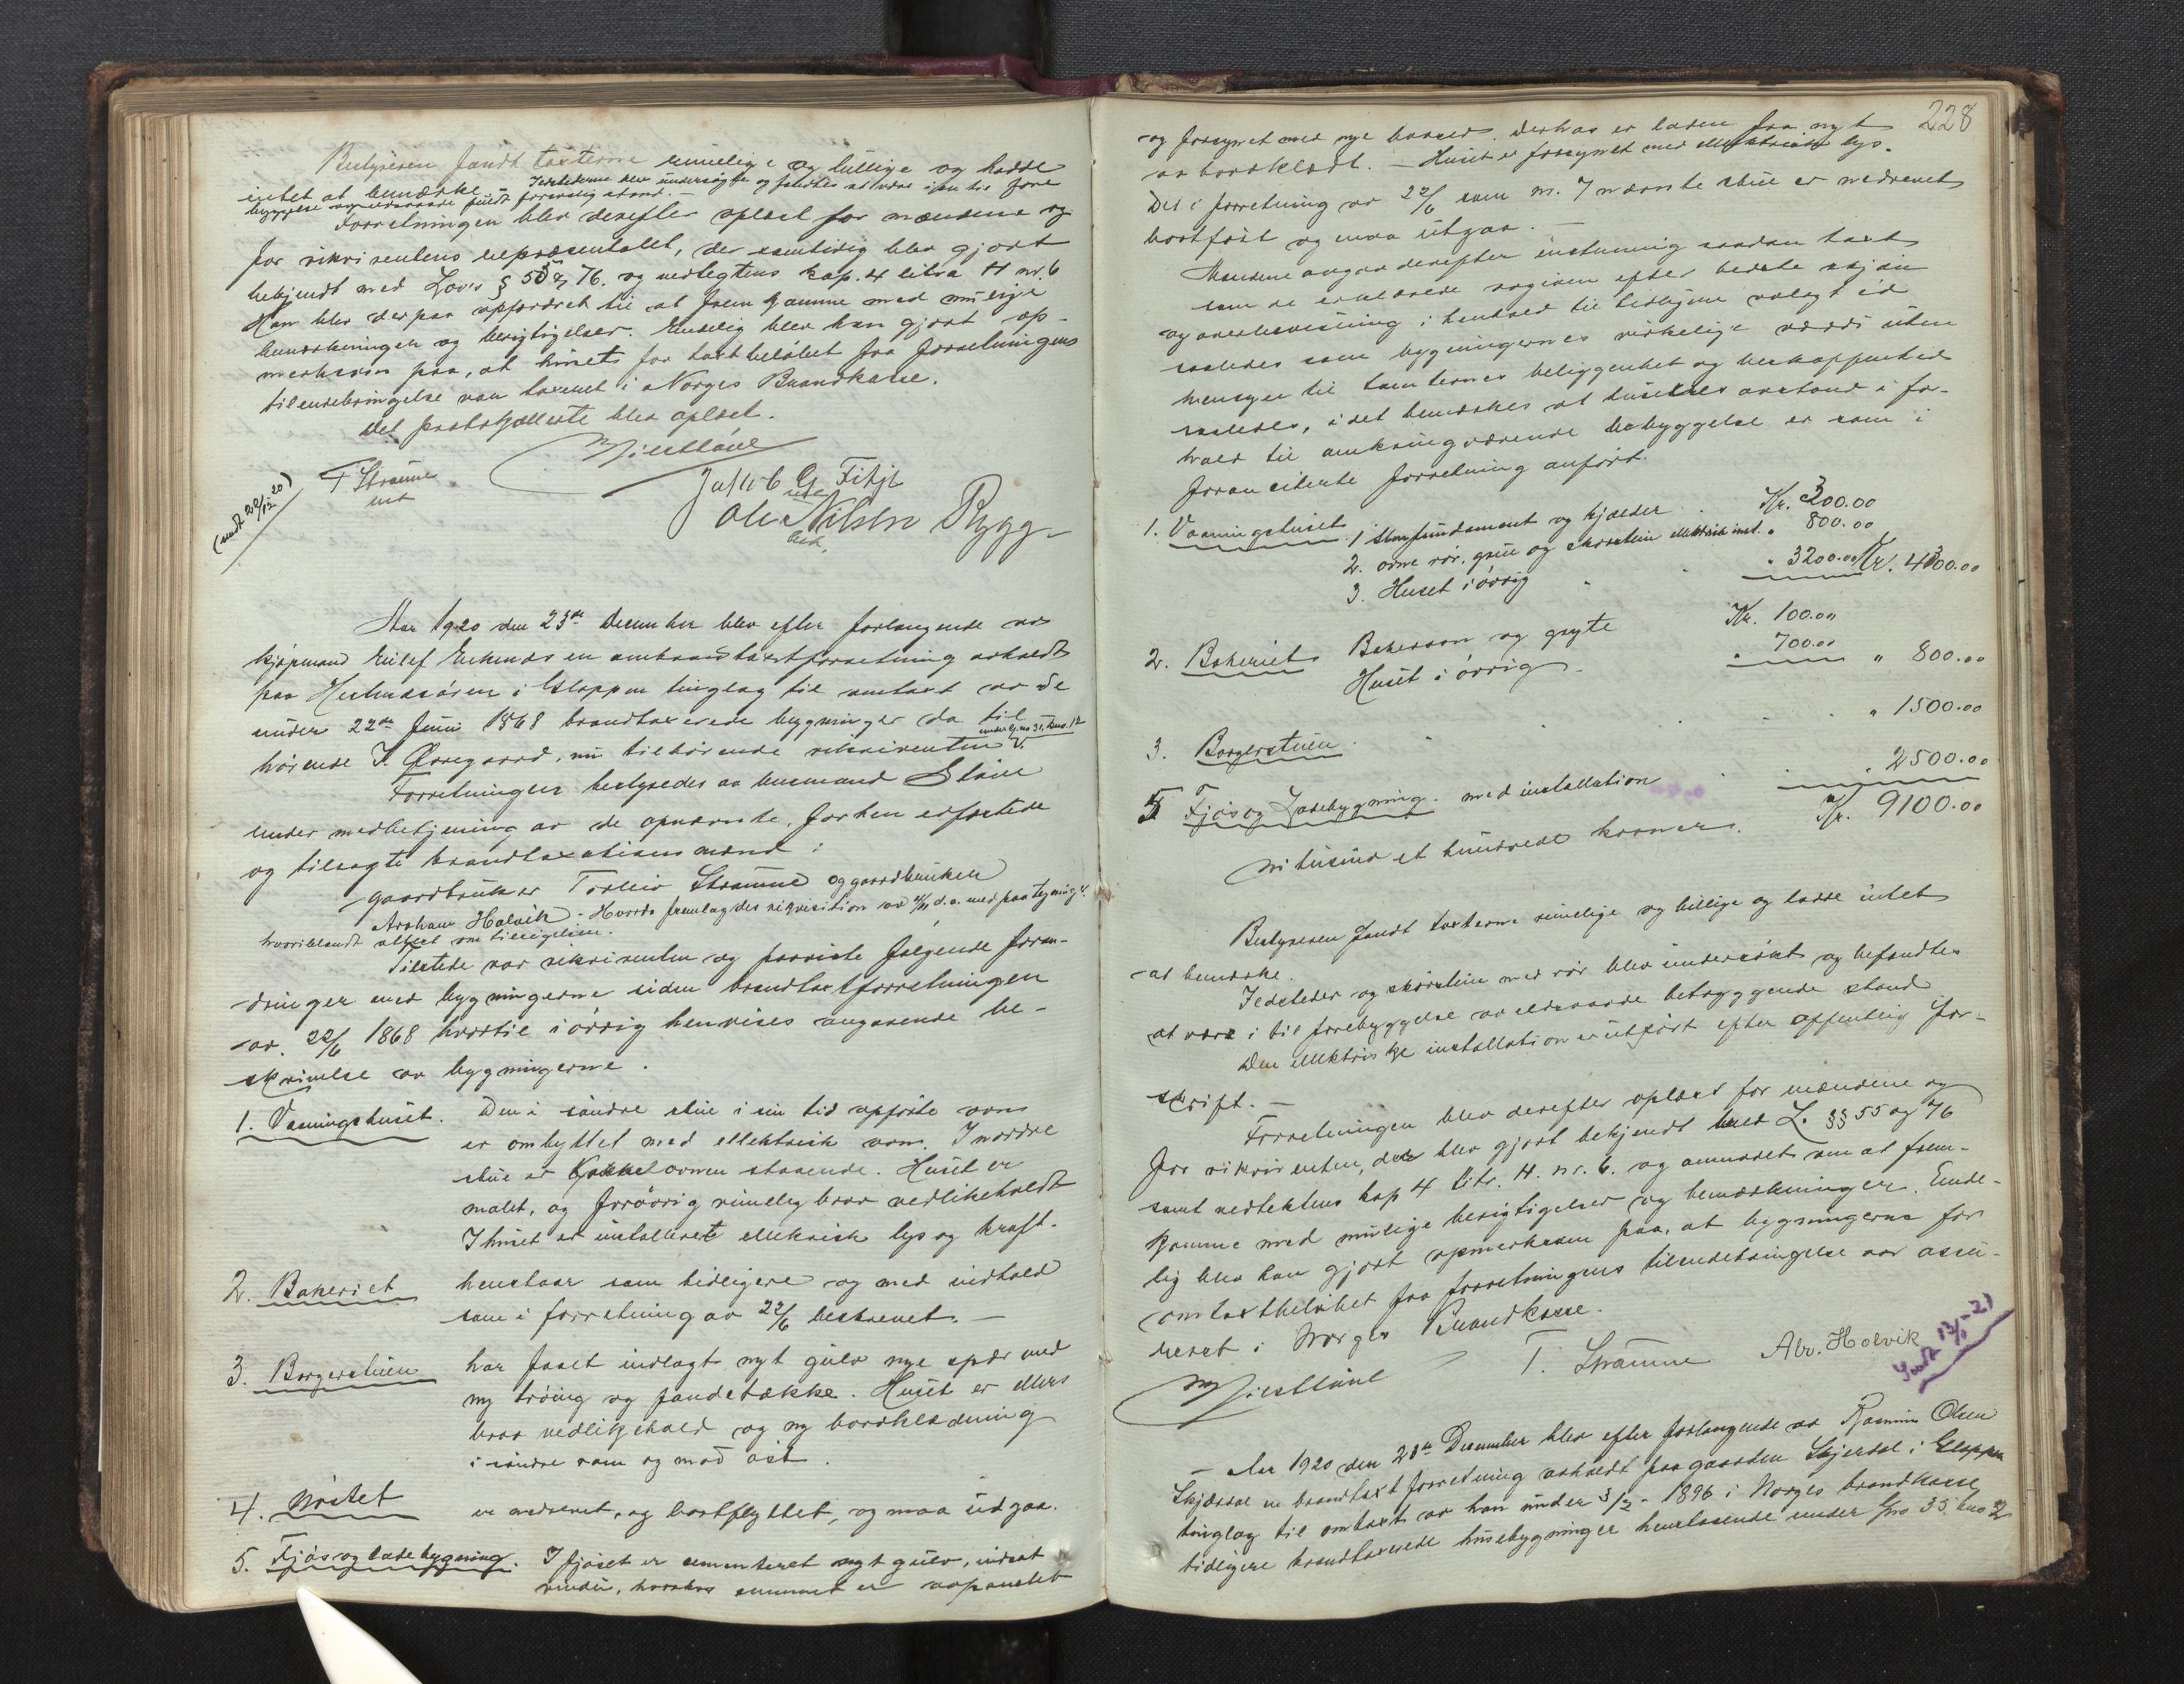 Bestyreren fandt taxterne rimelige og billige og hadde
intet at bemærke. - Ildstederne blev undersøgte og fandtes at være i en til fore
byggelse av ildsvaade fuldt forsvarlig stand. -
Forretningen blev derefter oplæst for mændene og
for rikvirentens repræsentatet, der samtidig blev gjort
bekjendt med Lovs § 55 og 76. og vedtegtens kap. 4 litra H nr. 6
Han blev derpaa opfordret til at frem komme med mulige
bemærkninger og berigtigelser. Endelig blev han gjort op-
merksom paa, at huset for taxtbeløbet fra forretningens
tilendebringelse var taxeret i Norges Brandkasse.
Det protokollerte blev oplæst.
(uts 22/12 20)
T Strømme
Jakob G Fitje
Ole Nilsen Rygg
Aar 1920 den 23de December blev efter forlangende av
kjøpmand Eilef Eikenæs en ombrandtaxtforretning avholdt
paa Hestnesøren i Gloppen tinglag til omtaxt av de
under 22de Juni 1868 brandtaxerede bygninger da til
hørende J. Ørregaard, nu tilhørende rikvirenten under G.no 31, Bno. 12
Forretningen bestyredes av lensmand Støine
under medbetjening av de opnævnte, forhen edfæstede
og tilsagte brandtaxationsmænd:
gaardbruker Torleiv Strømme og gaardbruker
Abraham Holvik. - Hvorda fremlagdes rikvisition av d. a. med paategning,
hvoriblandt attest om tilsigelsen.
Tilstede var rikvirenten og paaviste følgende foran-
dringer med bygningerne siden brandtaxtforretningen
av. 22/6 1868 hvortil i øvrig henvises angaaende be-
skrivelse av bygningerne.
1. Vaaningshuset. Den i søndre stue i sin tid opførte ovn
er ombyttet med ellektrisk ovn. I nordre
stue er Kakkelovnen staaende. Huset er
malet, og forøvrig rimelig brav vedlikeholdt
I huset er installeret ellektrisk lys og kraft.
2. Bakeriet henstaar som tidligere og med indhold
som i forretning av 22/6 beskrevet. -
3. Borgerstuen har faaet indlagt nyt gulv nye spær med
ny tróing og pandetække. Huset er ellers
brav vedlikehold og ny bordklædning
i søndre ram og mod øst.
4. Nøstet er nedrevet, og bortflyttet, og maa udgaa.
5. Fjøs og ladebygning. I fjøset er cementeret nyt gulv, indsat
vindu, hvorhos rummet er avpanelet
228
og forsynet med nye baaser. Derhos er laden fra nyt
av bordklædt. - Huset er forsynet med ellektrisk lys.
Det i forretning av 22/6 som nr. 7 nævnte stue er nedrevet
bortført og maa utgaa. -
Mændene avgav derefter enstemmig saadan taxt
som de erklærede avgiven efter bedste skjøn
og overbevisning i henhold til tidligere avlagt ed
saaledes som bygningernes virkelige værdi uten
hensyn til tomternes beliggenhet og beskaffenhet
saaledes, idet bemærkes at husenes avstand i for-
hold til omkringværende bebyggelse er som i
foran citerte forretning anført.
1. Vaaningshuset 1 Stenfundament og kjælder Kr. 300.00
2. ovne rør, grue og skorstein ellektrisk inst. " 800.00
3. Huset i øvrig " 3200.00 Kr. 4300.00
2. Bakeriet Bakerovn og gryte Kr. 100.00
Huset i øvrig " 700.00 " 800.00
3. Borgerstuen " 1500.00
5 Fjøs og Ladebygning. med installation " 2500.00
Kr. 9100.00
Ni tusind et hundrede kroner.
Bestyreren fandt taxterne rimelige og billige og hadde intet
at bemærke.
Ildsteder og skorstein med rør blev undersøkt og befandtes
at være i til forebyggelse av ildsvaade betryggende stand
Den ellektriske installation er utført efter offentlig for-
skrift. -
Forretningen blev derefter oplæst for mændene og
for rikvirenten, der blev gjort bekjendt med L. §§ 55 og 76
samt vedtektens kap 4 litr. H. nr. 6. og anmodet om at frem-
komme med mulige berigtigelser og bemærkninger. Ende-
lig blev han gjort opmerksom paa, at bygningerne for
omtaxtbeløbet fra forretningens tilendebringelse var assu-
reret i Norges Brandkasse.
T. Strømme Abr. Holvik
Sendt 13/1-21
- Aar 1920 den 28de December blev efter forlangende av Rasmus Olsen
Skjærdal en brandtaxtforretning avholdt paa gaarden Skjerdal i Gloppen
tinglag til omtaxt av han under 3/2 - 1896 i Norges brandkasse
tidligere brandtaxerede husebygninger henstaaende under Gno 35 bno 2